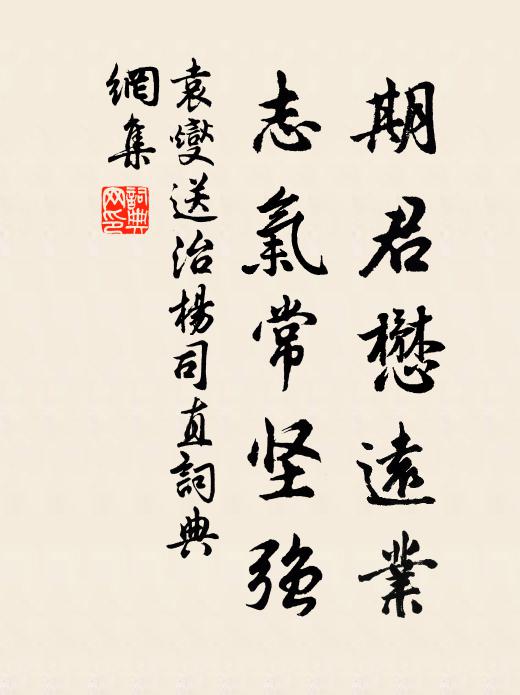 期君懋遠業
志氣常坚强
袁燮送治楊司直詞典
網集
詞典网印